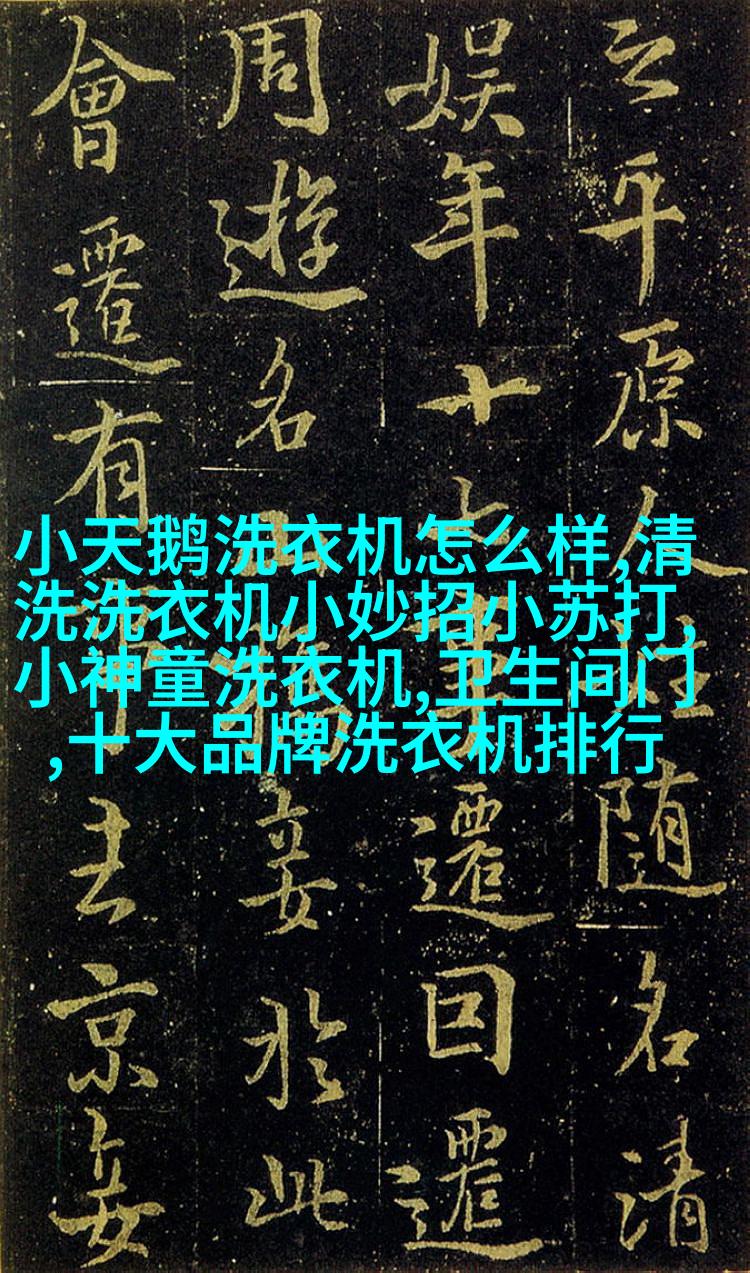 之平原人姓随名清
娱年十七事遷回遷
周遊名山妄於此
會遷有京妄
小天鹅洗衣机怎么样,清
洗洗衣机小妙招小苏打,
小神童洗衣机,卫生间门
,十大品牌洗衣机排行